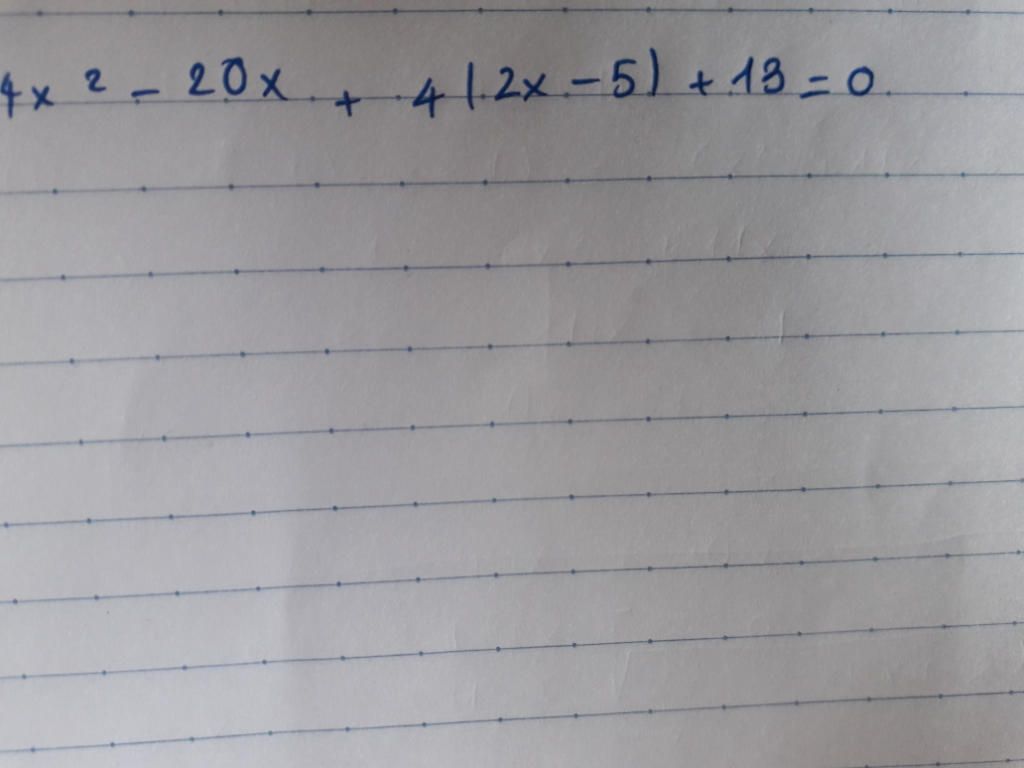 4x² - 20x + 4|2x - 5| + 13 = 0